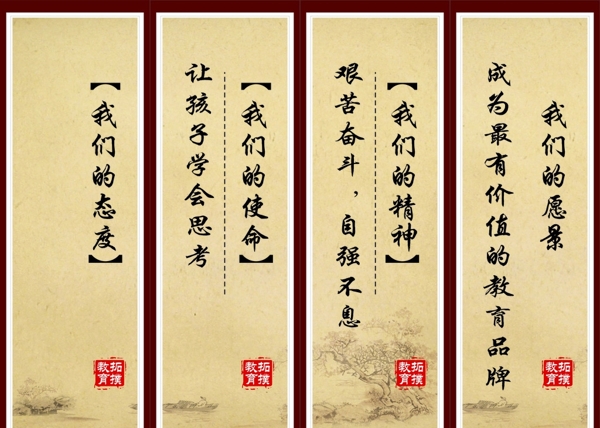 我们的愿景
成为最有价值的教育品牌
拓撲
教育
【我们的精神】
艰苦奋斗，自强不息
拓撲
教育
【我们的使命】
让孩子学会思考
拓撲
教育
【我们的态度】
拓撲
教育